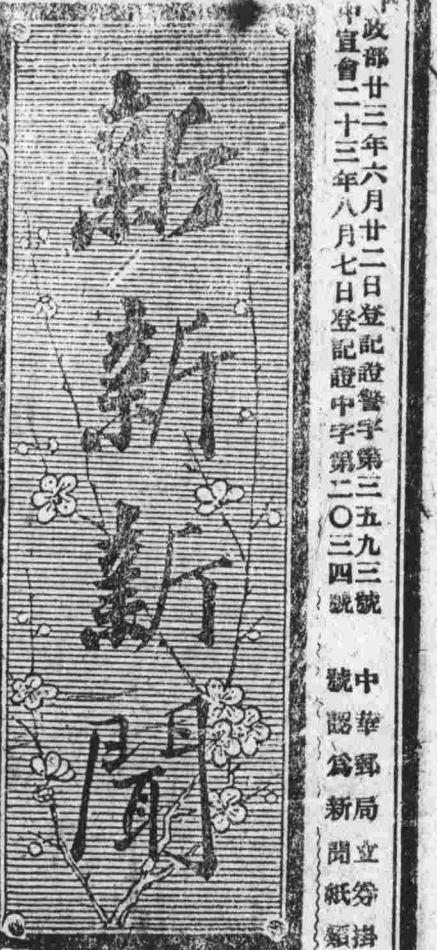 政部廿三年六月廿二日登記證警字第三五九三號
中宣會二十三年八月七日登記證中字第二〇三四號
中華郵局立券掛
號認爲新聞紙類
新新新聞